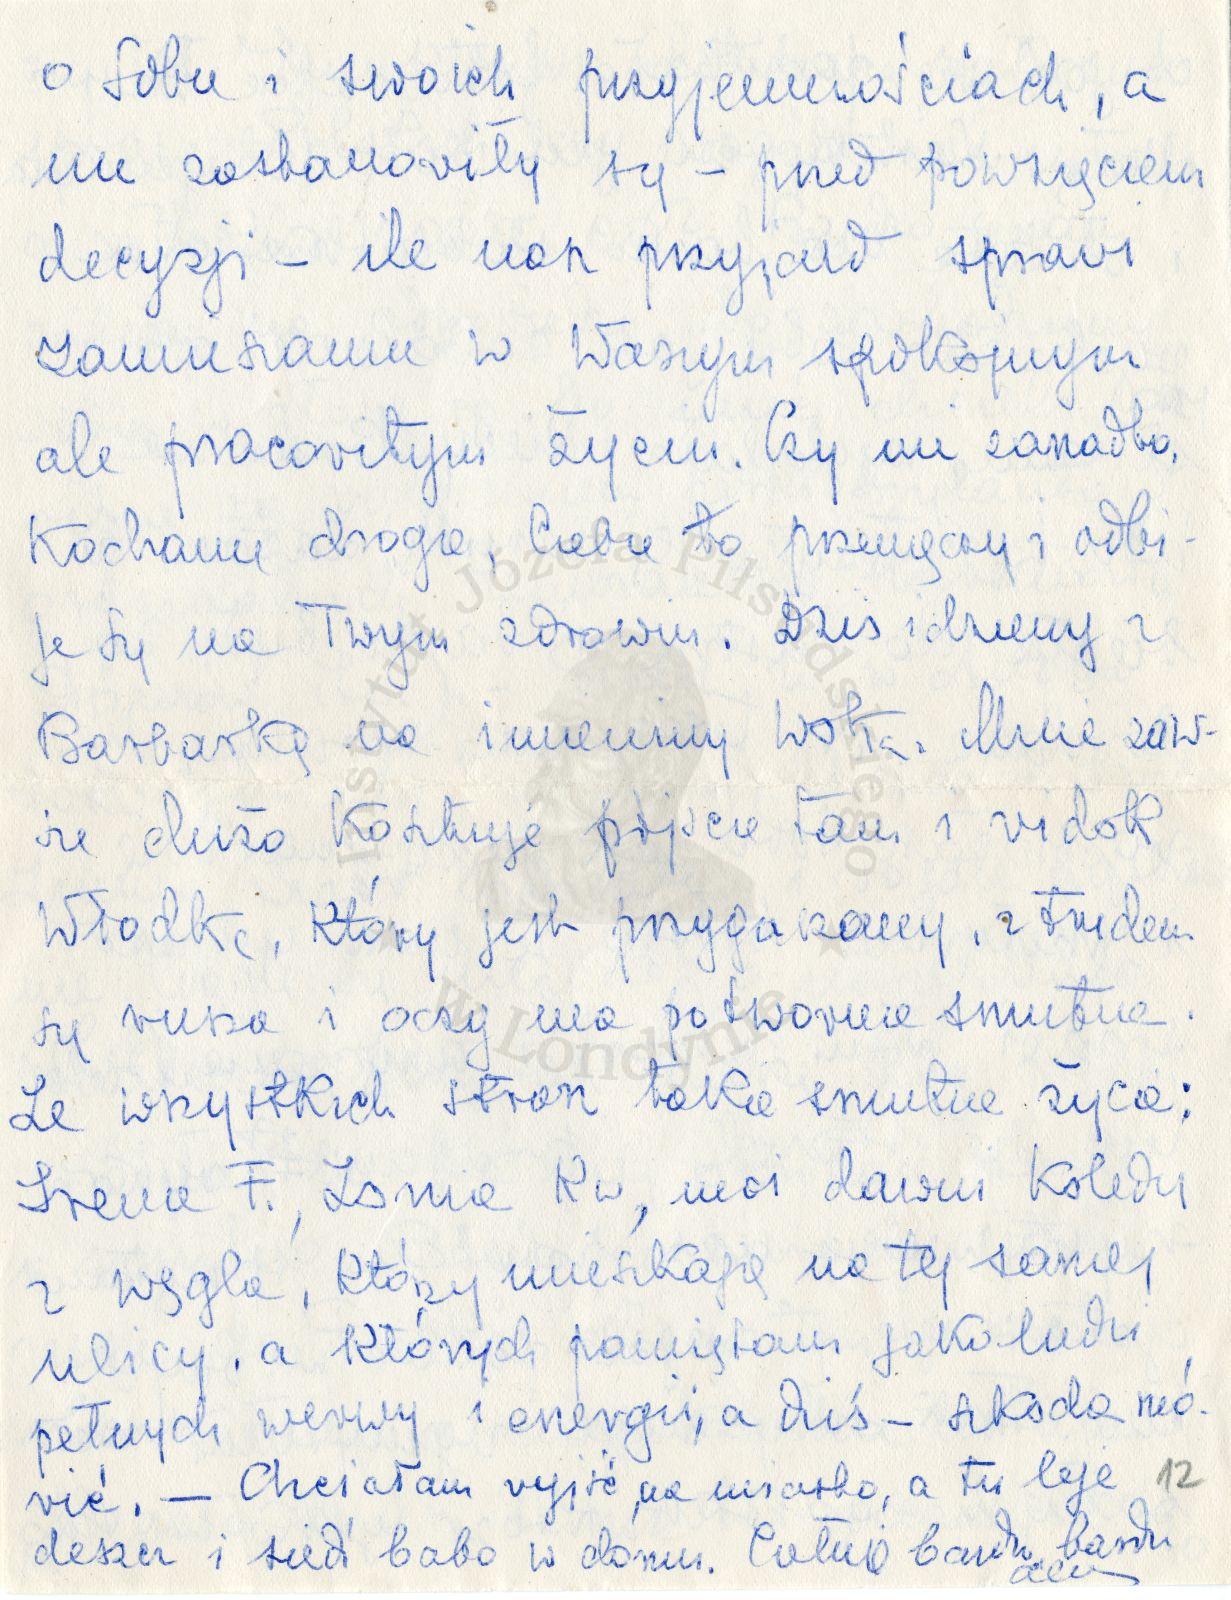 o sobie i swoich przyjemnościach, a
nie zastanowiły się – przed powzięciem
decyzji – ile nasz przyjazd sprawi
zamieszania w Waszym spokojnym
ale pracowitym życiu. Czy nie zanadto,
Kochanie drogie, Ciebie to przemęczy i odbi-
je się na Twym zdrowiu. Dziś idziemy z
Barbarką na imieniny Wołk. Mnie zaw-
sze dużo kosztuje pójście tam i widok
Włodka, który jest przygarbiony, z trudem
się rusza i oczy ma potwornie smutne.
Ze wszystkich stron takie smutne życie:
Irena F., Zosia Kw, moi dawni koledzy
z węgla, którzy mieszkają na tej samej
ulicy, a których pamiętam jako ludzi
pełnych werwy i energii, a dziś – szkoda mó-
wić. — Chciałam wyjść na miasto, a tu leje
deszcz i siedź babo w domu. Całuję bardzo, bardzo
12
Instytut Józefa Piłsudskiego
w Londynie